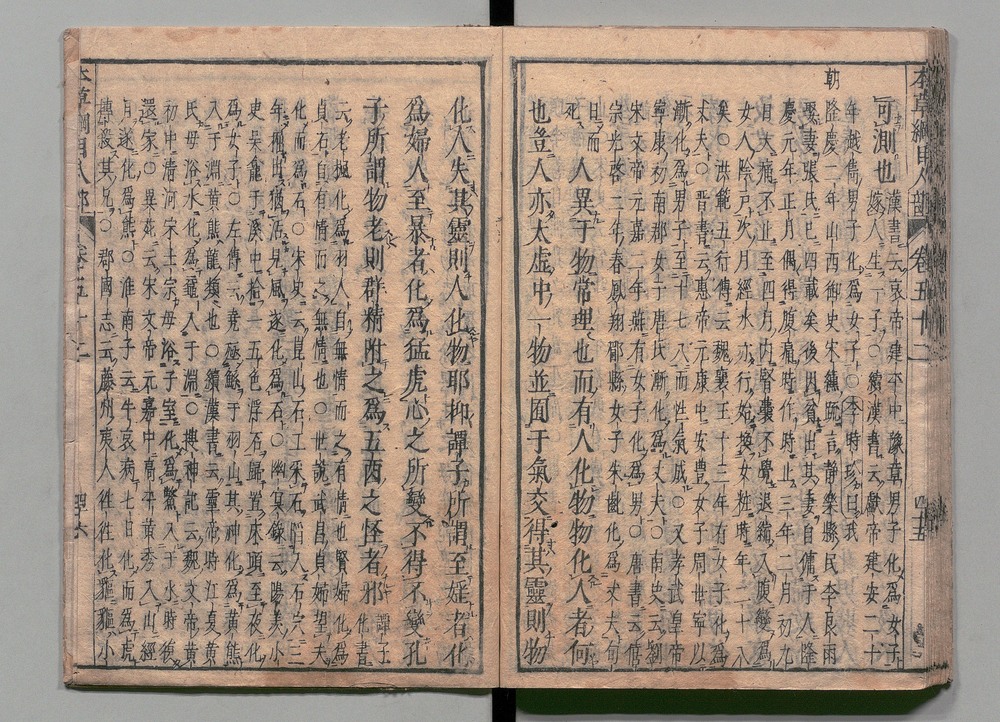 可測也 漢書云哀帝建平中豫章男子化為女子
嫁人生一子○續漢書云獻帝建安二十
年越雋男子化為女子○李時珍曰我
朝
隆慶二年山西御史宋纁疏言靜樂縣民李良雨
娶妻張氏已四載矣後因貧出其妻自傭于人隆
慶元年正月偶得腹痛時作時止二年二月初九
日大痛不止至四月內腎囊不覺退縮入腹變為
女人陰戶次月經水亦行始換女粧時年二十八
矣○洪範五行傳云魏襄王十三年有女子化為
丈夫○晉書云惠帝元康中安豐女子周世寧以
漸化為男子至十七八而性氣成○又孝武皇帝
寧康初南郡女子唐氏漸化為丈夫○南史云劉
宋文帝元嘉二年燕有女子化為男○唐書云僖
宗光啓二年春鳳翔郿縣女子朱齔化為丈夫旬
日而
死 人異于物常理也而有人化物物化人者何
也豈人亦太虛中一物並囿于氣交得其靈則物
本草綱目人部 卷五十二 四五
化人失其靈則人化物耶抑譚子所謂至婬者化
為婦人至暴者化為猛虎心之所變不得不變孔
子所謂物老則群精附之為五酉之怪者邪 譚子
化書
云老楓化為羽人自無情而之有情也賢婦化為
貞石自有情而之無情也○世說武昌貞婦望夫
化而為石○宋史云昆山石工采石陷入石穴三
年掘出猶活見風遂化為石○幽冥錄云陽羨小
史吳龕于溪中拾一五色浮石歸置床頭至夜化
為女子○左傳云堯殛鯀于羽山其神化為黃熊
入于淵黃熊龍類也○續漢書云靈帝時江夏黃
氏母浴水化為黿入于淵○搜神記云魏文帝黃
初中清河宋士宗母浴于室化為鱉入于水時復
還家○異苑云宋文帝元嘉中高平黃秀入山經
月遂化為熊○淮南子云牛哀病七日化而為虎
摶殺其兄○郡國志云藤州夷人往往化貙貙小
本草綱目人部 卷五十二 四六